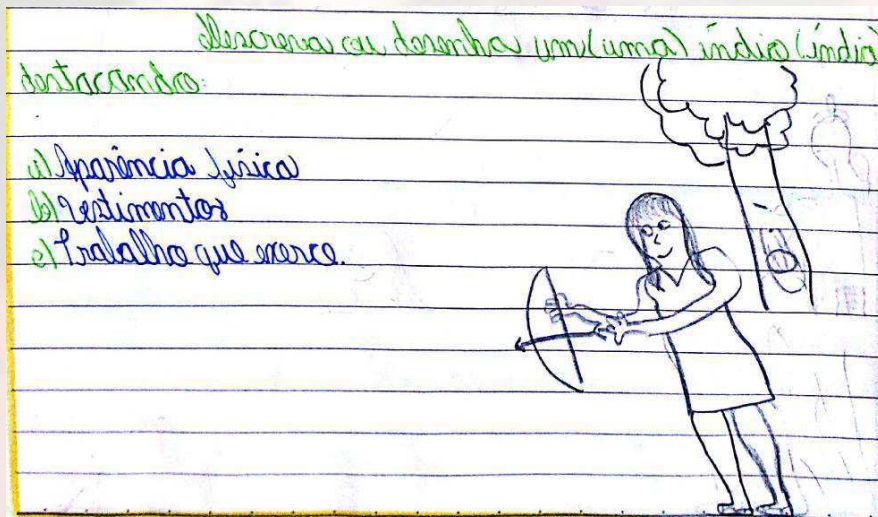 Descreva ou desenha um(uma) índio(índia)
destacando:
a) Aparência física
b) Vestimentos
c) Trabalho que exerce.